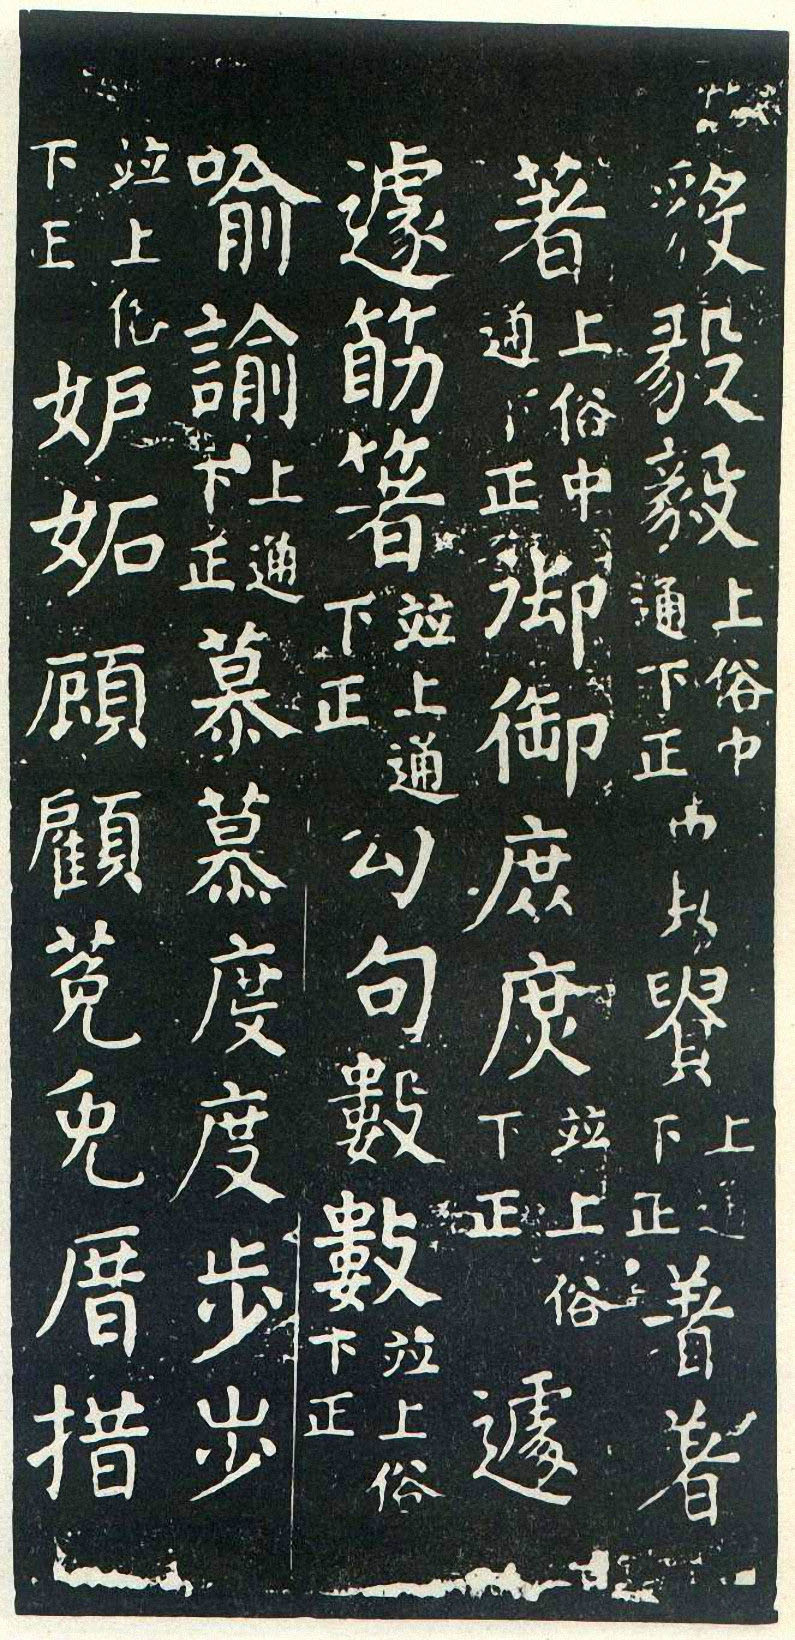 毅毅上俗中通下正下正著著
著上俗中通下正御御庶庶並上俗下正遽
遽筯箸並上通下正勾句數數並上俗下正
喻諭上通下正慕慕度度步步
並上俗下正妒妬頋顧菟兔厝措